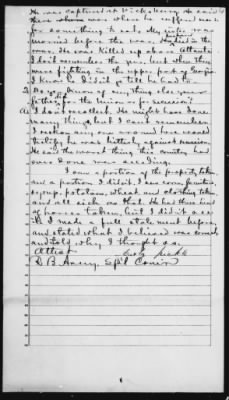 He was captured at Vicksburg. He said to
them where he suffered
for something to eat. My sister was
married before the war, Husband in the
war. He was killed up above Atlanta.
I don't remember the year, but when they
were fighting in the upper part of Georgia.
I know he didn't go till he had to.
Q. Do you know of anything else your
father did for the union or for secession?
A. I don't recollect. He might have done
many things but I can't remember.
I reckon any one around here would
testify he was bitterly against secession.
He said the worst thing this country had
ever done was seceding.
I saw a portion of the property taken,
and a portion I didn't. I saw corn,
syrup, potatoes, wheat and clothing taken,
and all such as that. He had three head
of horses taken, but I didn't see
it. I made a full statement before
and stated what I believed was
and told why I thought so.
Attest
R. B. Avery, Sp'l Com'r